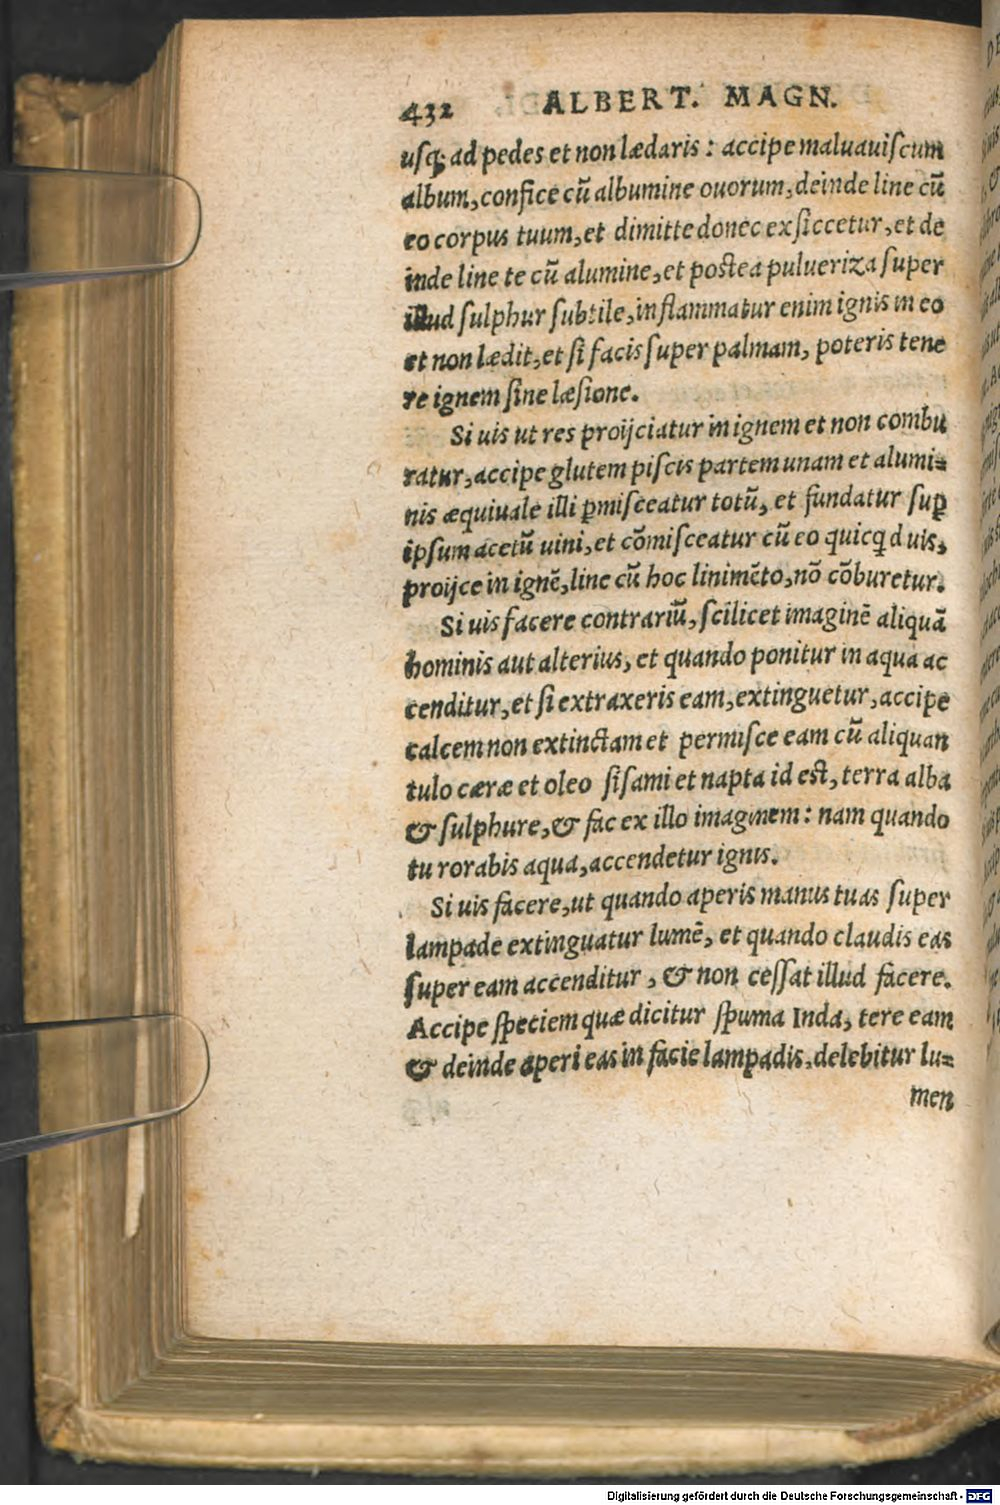 432 ALBERT. MAGN.
uſq; ad pedes et non lædaris : accipe maluauiſcum
album, confice cũ albumine ouorum, deinde line cũ
eo corpus tuum, et dimitte donec exſiccetur, et de
inde line te cũ alumine, et postea pulueriza ſuper
illud ſulphur ſubtile, inflammatur enim ignis in eo
et non lædit, et ſi facis ſuper palmam, poteris tene
re ignem ſine læſione.
Si uis ut res proijciatur in ignem et non combu
ratur, accipe glutem piſcis partem unam et alumi=
nis æquiuale illi ꝑmiſceatur totũ, et fundatur ſuꝑ
ipſum acetũ uini, et cõmiſceatur cũ eo quicqd uis,
proijce in ignẽ, line cũ hoc linimẽto, nõ cõburetur.
Si uis facere contrariũ, ſcilicet imaginẽ aliquã
hominis aut alterius, et quando ponitur in aqua ac
cenditur, et ſi extraxeris eam, extinguetur, accipe
calcem non extinctam et permiſce eam cũ aliquan
tulo cæræ et oleo ſiſami et napta id est, terra alba
& ſulphure, & fac ex illo imaginem : nam quando
tu rorabis aqua, accendetur ignis.
Si uis facere, ut quando aperis manus tuas ſuper
lampade extinguatur lumẽ, et quando claudis eas
ſuper eam accenditur, & non ceſſat illud facere.
Accipe ſpeciem quæ dicitur ſpuma Inda, tere eam
& deinde aperi eas in facie lampadis, delebitur lu=
men
Digitalisierung gefördert durch die Deutsche Forschungsgemeinschaft - DFG